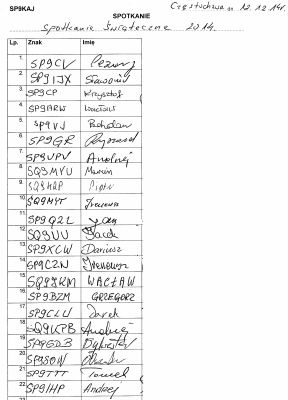 SP9KAJ
Częstochowa 12.12.14r.
SPOTKANIE
Spotkanie Świąteczne 2014.
Lp. Znak Imię
1. SP9CV
2. SP9IJX Sławomir
3. SP9CP Krzysztof
4. SP9ARW Wacław
5. SP9VJ Bohdan
6. SP9GR Ryszard
7. SP9UPV Andrzej
8. SQ9MYU Marcin
9. Piotr
10. SQ9MYT Ireneusz
11. SP9Q2L Jan
12. SQ9UU Jacek
13. SP9XCW Dariusz
14. SP9CZN Ireneusz
15. WACŁAW
16. SP9BZM GRZEGORZ
17. SP9CLU Darek
18. SQ9KPB Andrzej
19. SP9GDB
20. SP9SOW
21. SP9TTT Tomek
22. SP9IHP Andrzej